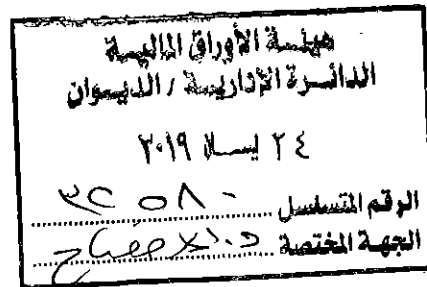 هيئة الأوراق المالية
الدائرة الإدارية / الديوان
٢٤ نيسان ٢٠١٩
الرقم المتسلسل
الجهة المختصة الإفصاح